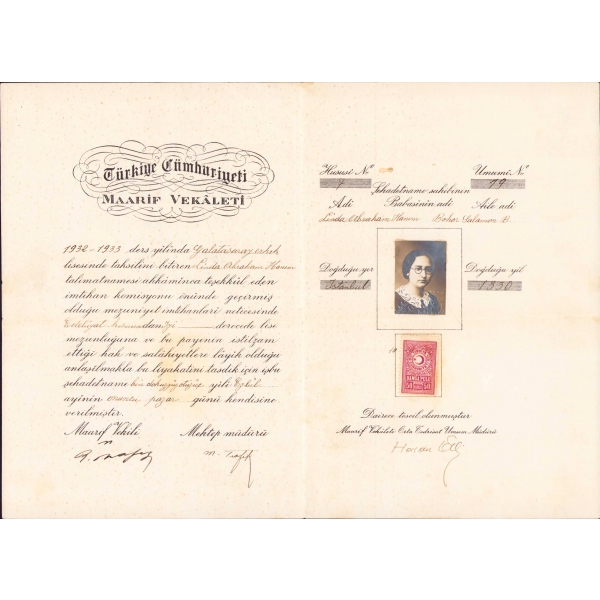 Türkiye Cümhuriyeti
MAARİF VEKÂLETİ
1932-1933 ders yılında Galatasaray erkek
lisesinde tahsilini bitiren Linda Abraham Hanım
talimatnamesi ahkâmınca teşekkül eden
imtihan komisyonu önünde geçirmiş
olduğu mezuniyet imtihanları neticesinde
Edebiyat dan iyi derecede lise
mezunluğuna ve bu payenin istilzam
ettiği hak ve salâhiyetlere lâyık olduğu
anlaşılmakla bu liyakatini tasdik için işbu
şehadetname bin dokuz yüz otuz üç yılı Eylûl
ayının onuncu pazar günü kendisine
verilmiştir.
Maarif Vekili Mektep müdürü
Hususî No Umumî No
79
Şehadetname sahibinin
Adı Babasının adı Aile adı
Linda Abraham Hanım Bohor Salamon
Doğduğu yer Doğduğu yıl
İstanbul 1330
DAMGA PULU
50 50
Dairece tescil olunmuştur
Maarif Vekâleti Orta Tedrisat Umum Müdürü
Hasan